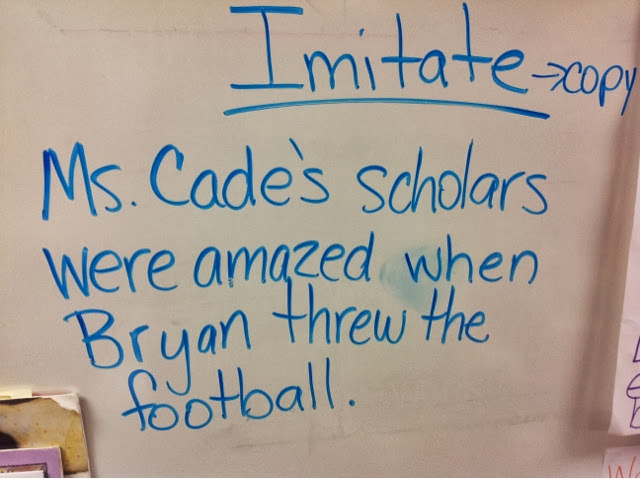 Imitate → copy
Ms. Cade's scholars
were amazed when
Bryan threw the
football.